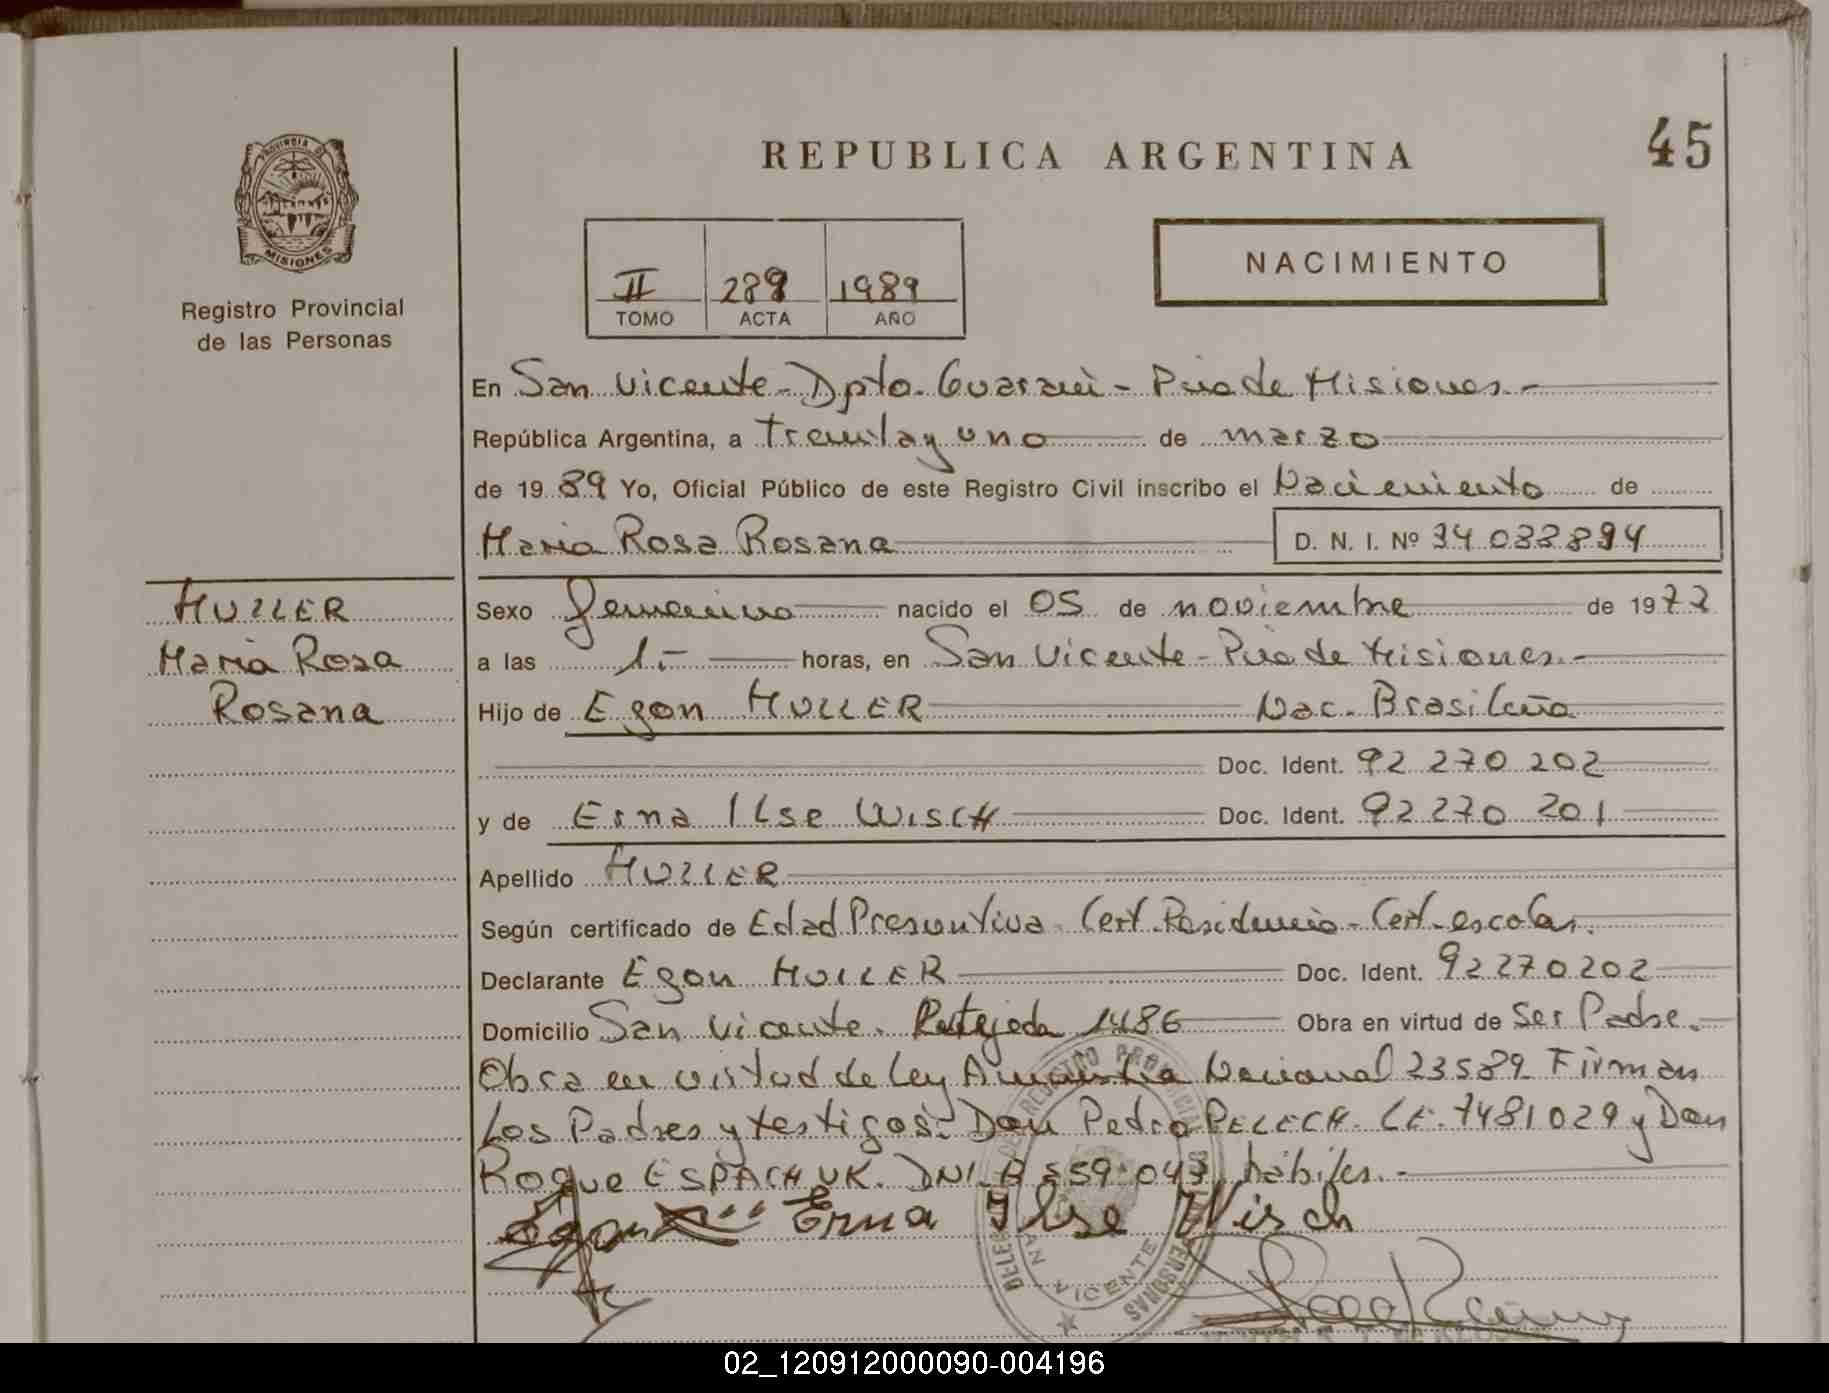 45
REPUBLICA ARGENTINA
PROVINCIA D
MISIONES
Registro Provincial
de las Personas
NACIMIENTO
II 289 1989
TOMO ACTA AÑO
En San Vicente - Dpto. Guaraní - Pcia de Misiones.-
República Argentina, a Treinta y uno de marzo
de 1989 Yo, Oficial Público de este Registro Civil inscribo el Nacimiento de
Maria Rosa Rosana D. N. I. Nº 34 033 894
HULLER
Maria Rosa
Rosana
Sexo femenino nacido el 05 de noviembre de 1977
a las 1.- horas, en San Vicente - Pcia de Misiones.-
Hijo de Egon HULLER Nac. Brasileña
Doc. Ident. 92 270 202
y de Erna Ilse WISCH Doc. Ident. 92 270 201
Apellido HULLER
Según certificado de Edad Presuntiva - Cert. Residencia - Cert. escolar.
Declarante Egon HULLER Doc. Ident. 92270202
Domicilio San Vicente. 1486 Obra en virtud de Ser Padre.-
Obra en virtud de Ley Amnistia Nacional 23589 Firman
Los Padres y testigos: Don Pedro PELECH. LE. 7481029 y Don
Roque ESPACHUK. DNI. 8 559 047, hábiles.-
Egon Erna Ilse Wisch
REGISTRO PROVINCIAL
PERSONAS
SAN VICENTE
02_120912000090-004196